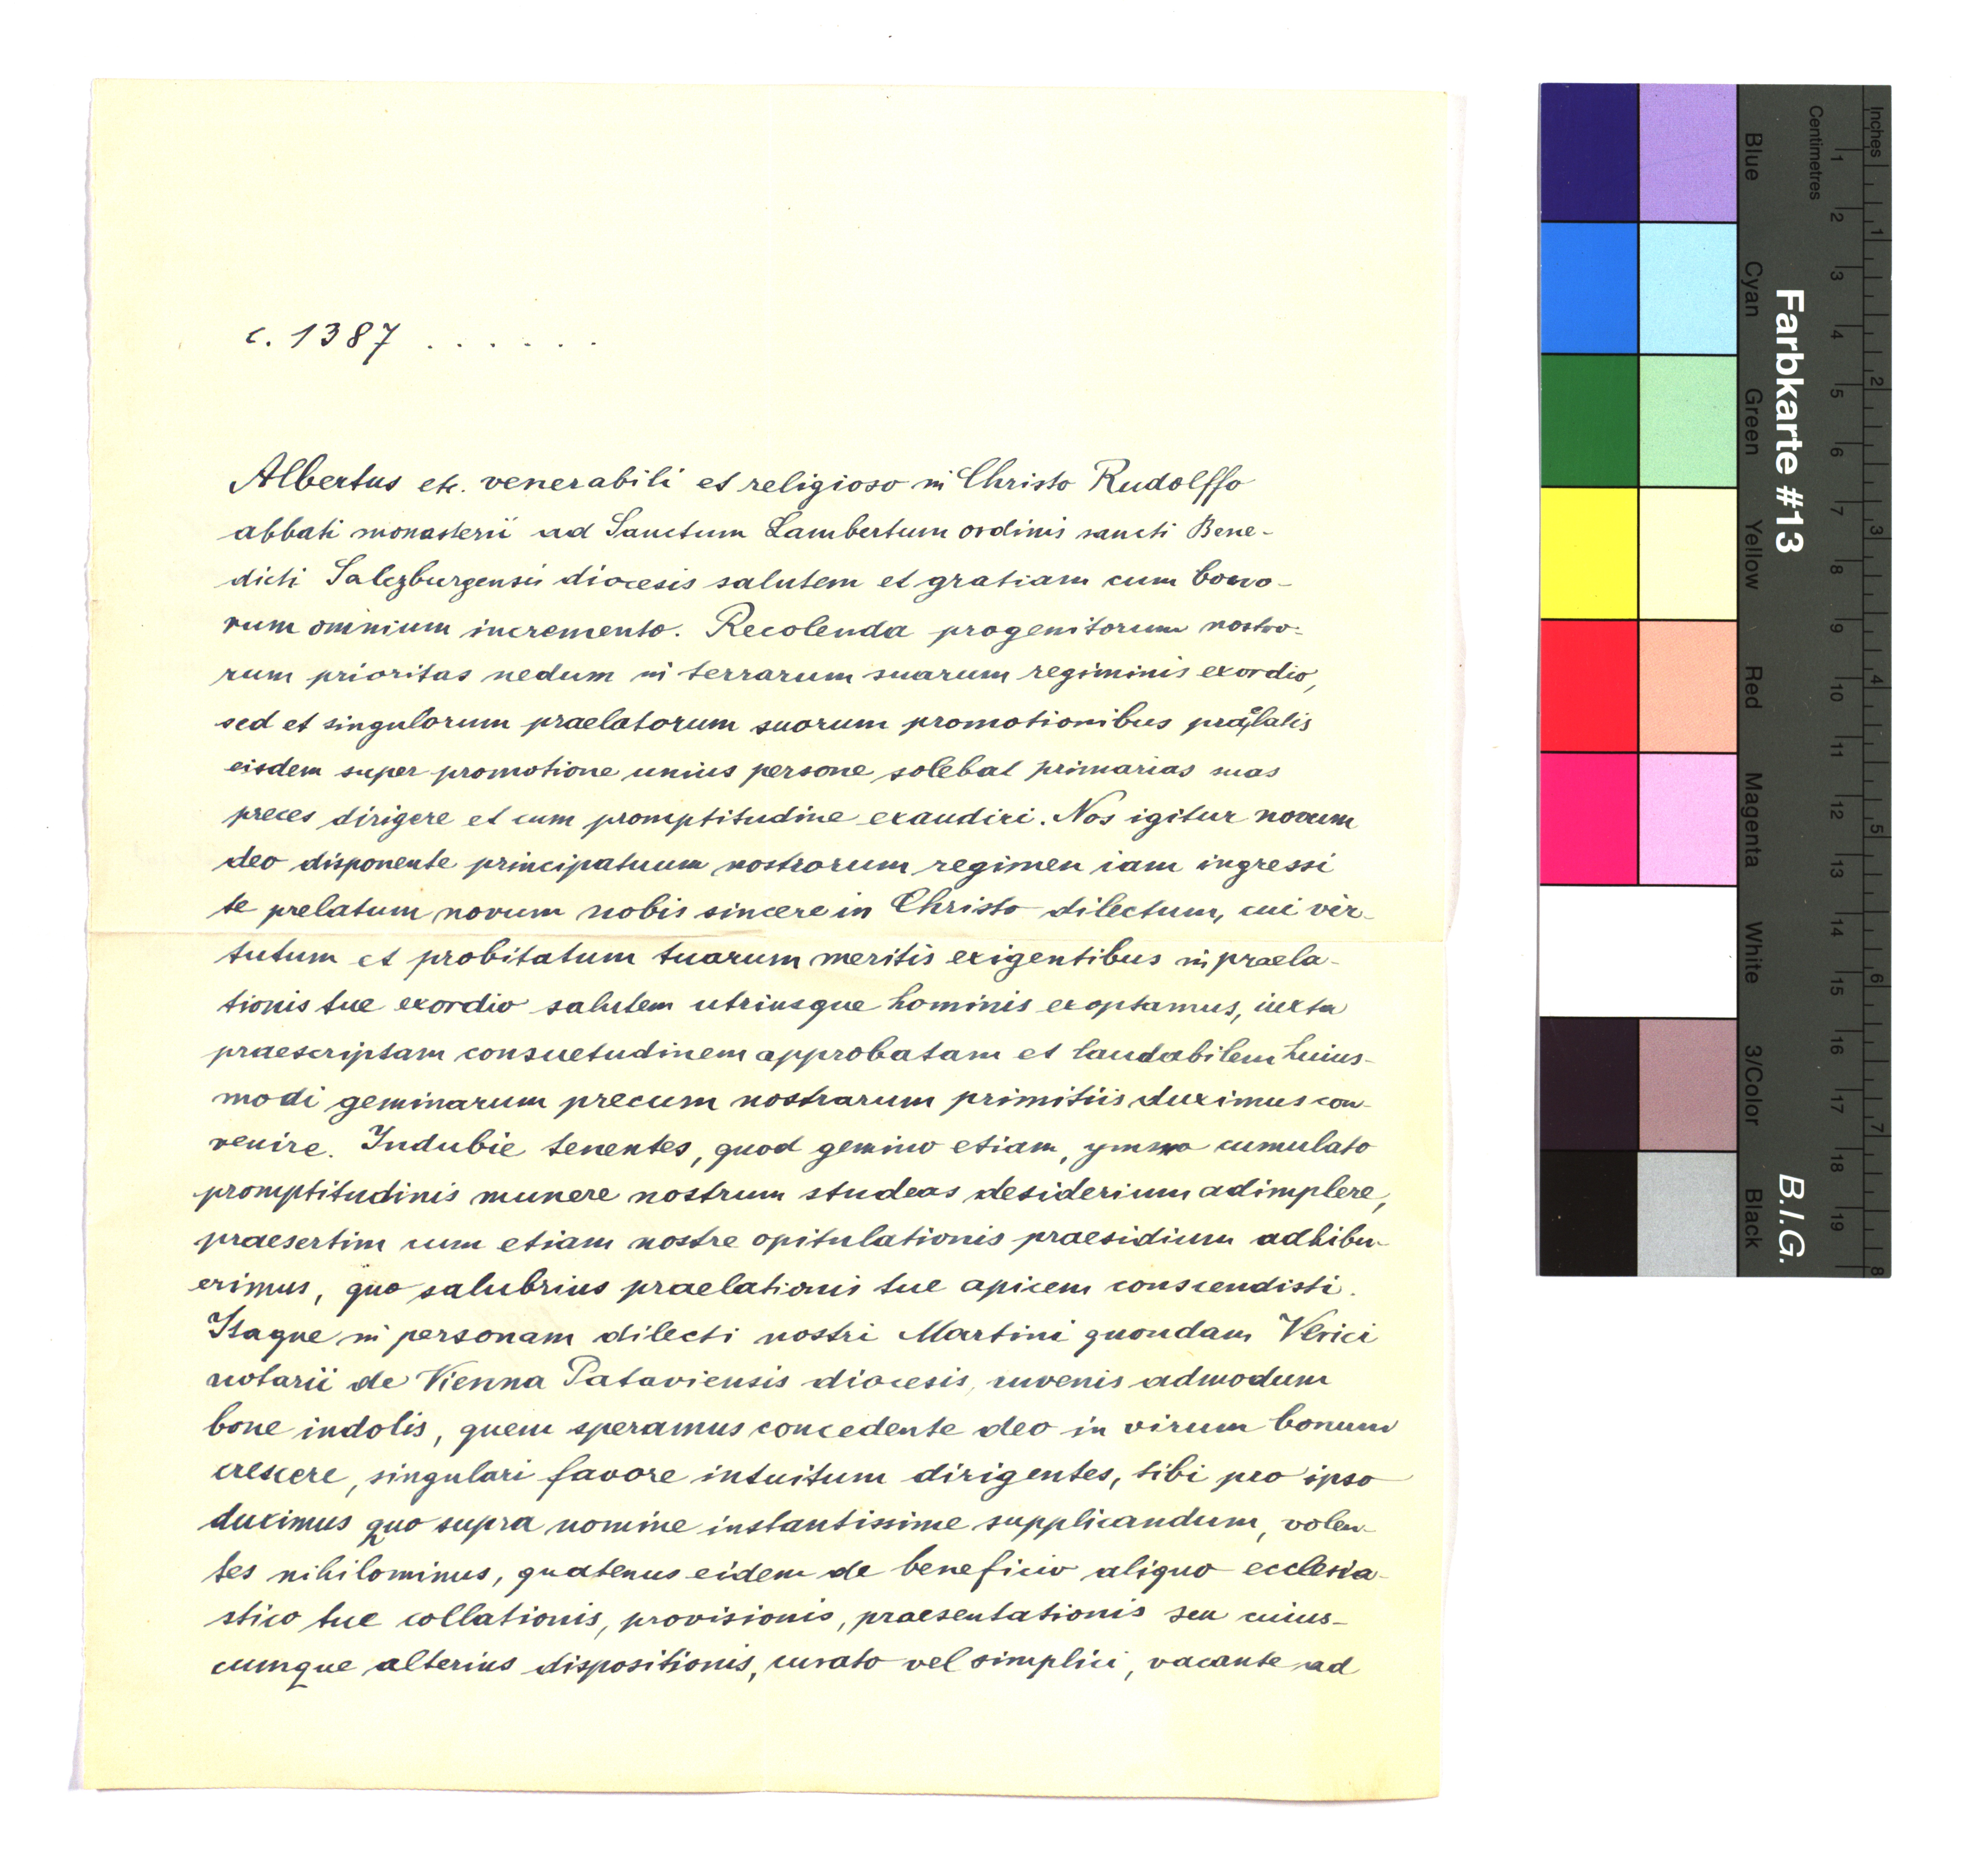 c. 1387 . . . . . .
Albertus etc. venerabili et religioso in Christo Rudolffo
abbati monasterii ad Sanctum Lambertum ordinis sancti Bene-
dicti Salczburgensis diocesis salutem et gratiam cum bono-
rum omnium incremento. Recolenda progenitorum nostro-
rum prioritas nedum in terrarum suarum regiminis exordio,
sed et singulorum praelatorum suorum promotionibus praelatis
eisdem super promotione unius persone solebat primarias suas
preces dirigere et cum promptitudine exaudiri. Nos igitur novum
deo disponente principatuum nostrorum regimen iam ingressi
te prelatum novum nobis sincere in Christo dilectum, cui vir-
tutum et probitatum tuarum meritis exigentibus in praela-
tionis tue exordio salutem utriusque hominis exoptamus, iuxta
praescriptam consuetudinem approbatam et laudabilem huius-
modi geminarum precum nostrarum primitiis duximus con-
venire. Indubie tenentes, quod gemino etiam, ymmo cumulato
promptitudinis munere nostrum studeas desiderium adimplere,
praesertim cum etiam nostre opitulationis praesidium adhibu-
erimus, quo salubrius praelationis tue apicem conscendisti.
Itaque in personam dilecti nostri Martini quondam Vlrici
notarii de Vienna Pataviensis diocesis, iuvenis admodum
bone indolis, quem speramus concedente deo in virum bonum
crescere, singulari favore intuitum dirigentes, tibi pro ipso
duximus quo supra nomine instantissime supplicandum, volen-
tes nihilominus, quatenus eidem de beneficio aliquo ecclesia-
stico tue collationis, provisionis, praesentationis seu cuius-
cumque alterius dispositionis, curato vel simplici, vacante ad
Inches
Centimetres
1 2 3 4 5 6 7 8 9 10 11 12 13 14 15 16 17 18 19
1 2 3 4 5 6 7 8
Farbkarte #13
B.I.G.
Blue
Cyan
Green
Yellow
Red
Magenta
White
3/Color
Black